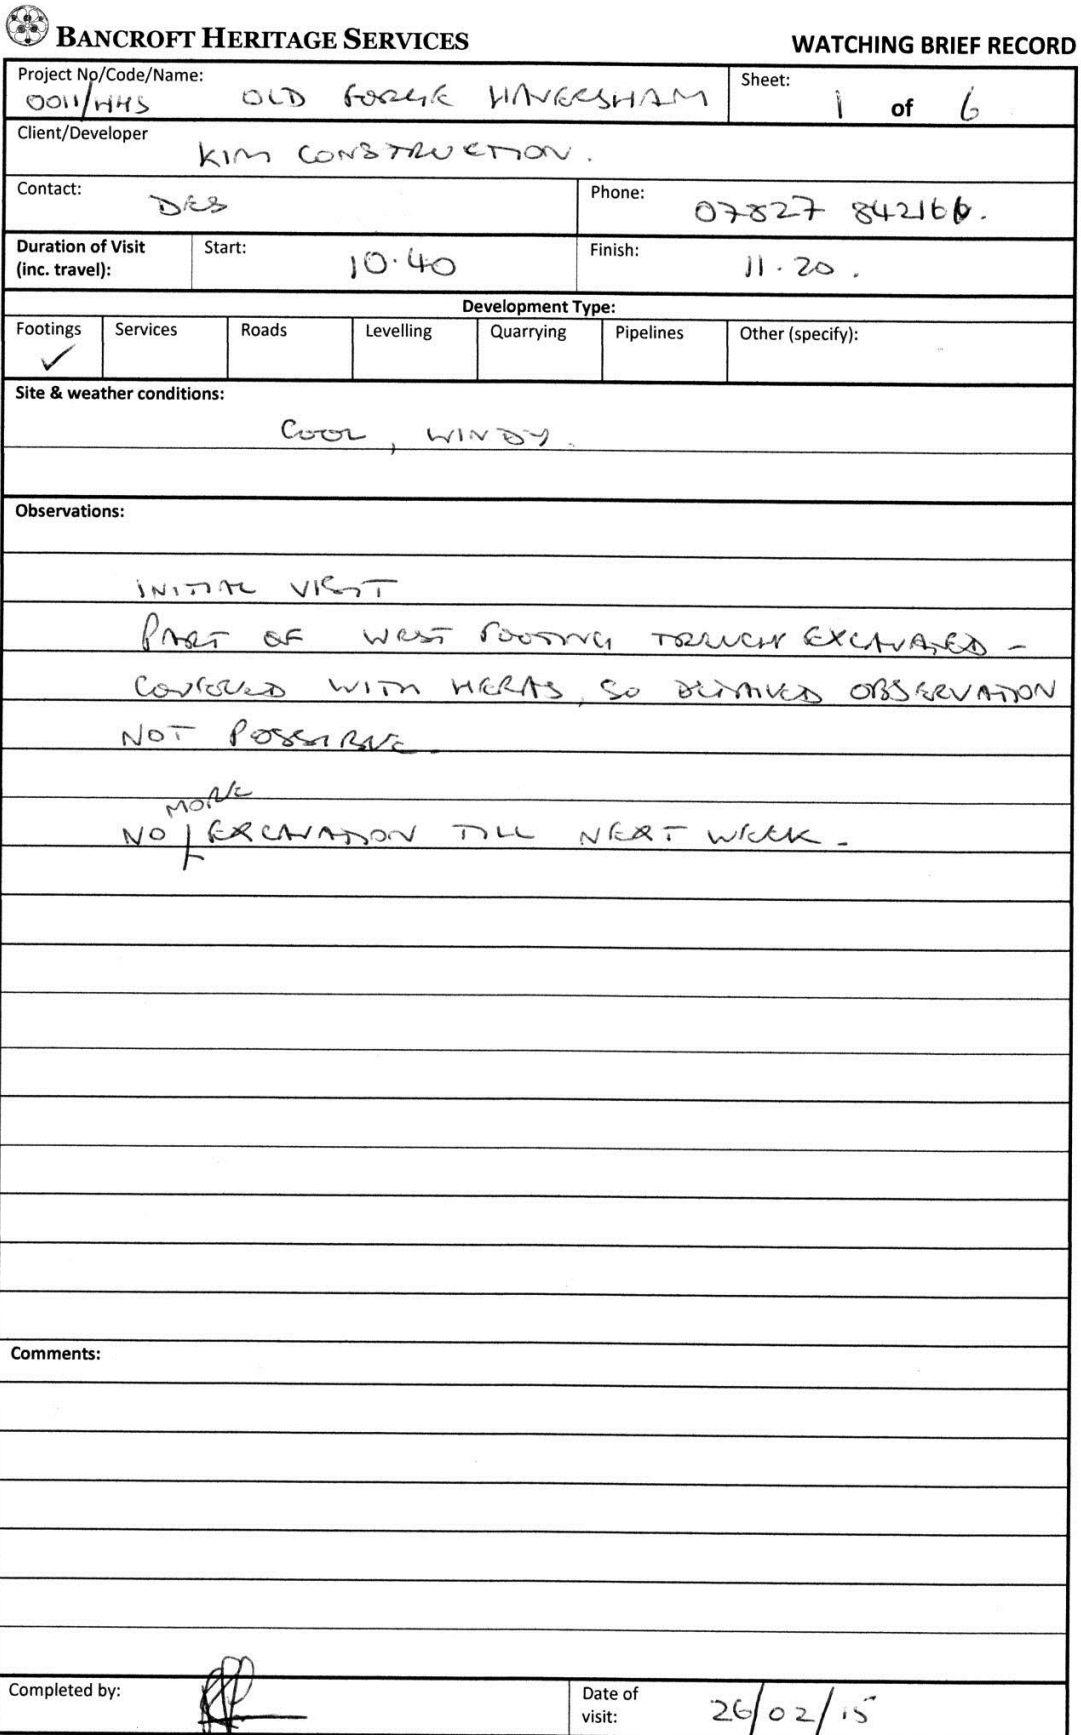 BANCROFT HERITAGE SERVICES
WATCHING BRIEF RECORD
Project No/Code/Name:
0011/HHS OLD FORGE HAVERSHAM
Sheet:
1 of 6
Client/Developer
KIM CONSTRUCTION.
Contact:
DES
Phone:
07827 842166.
Duration of Visit
(inc. travel):
Start:
10.40
Finish:
11.20.
Development Type:
Footings Services Roads Levelling Quarrying Pipelines Other (specify):
✓
Site & weather conditions:
COOL, WINDY.
Observations:
INITIAL VISIT
PART OF WEST FOOTING TRENCH EXCAVATED -
COVERED WITH HERAS, SO DETAILED OBSERVATION
NOT POSSIBLE.
MORE
NO EXCAVATION TILL NEXT WEEK.
Comments:
Completed by:
Date of
visit:
26/02/15